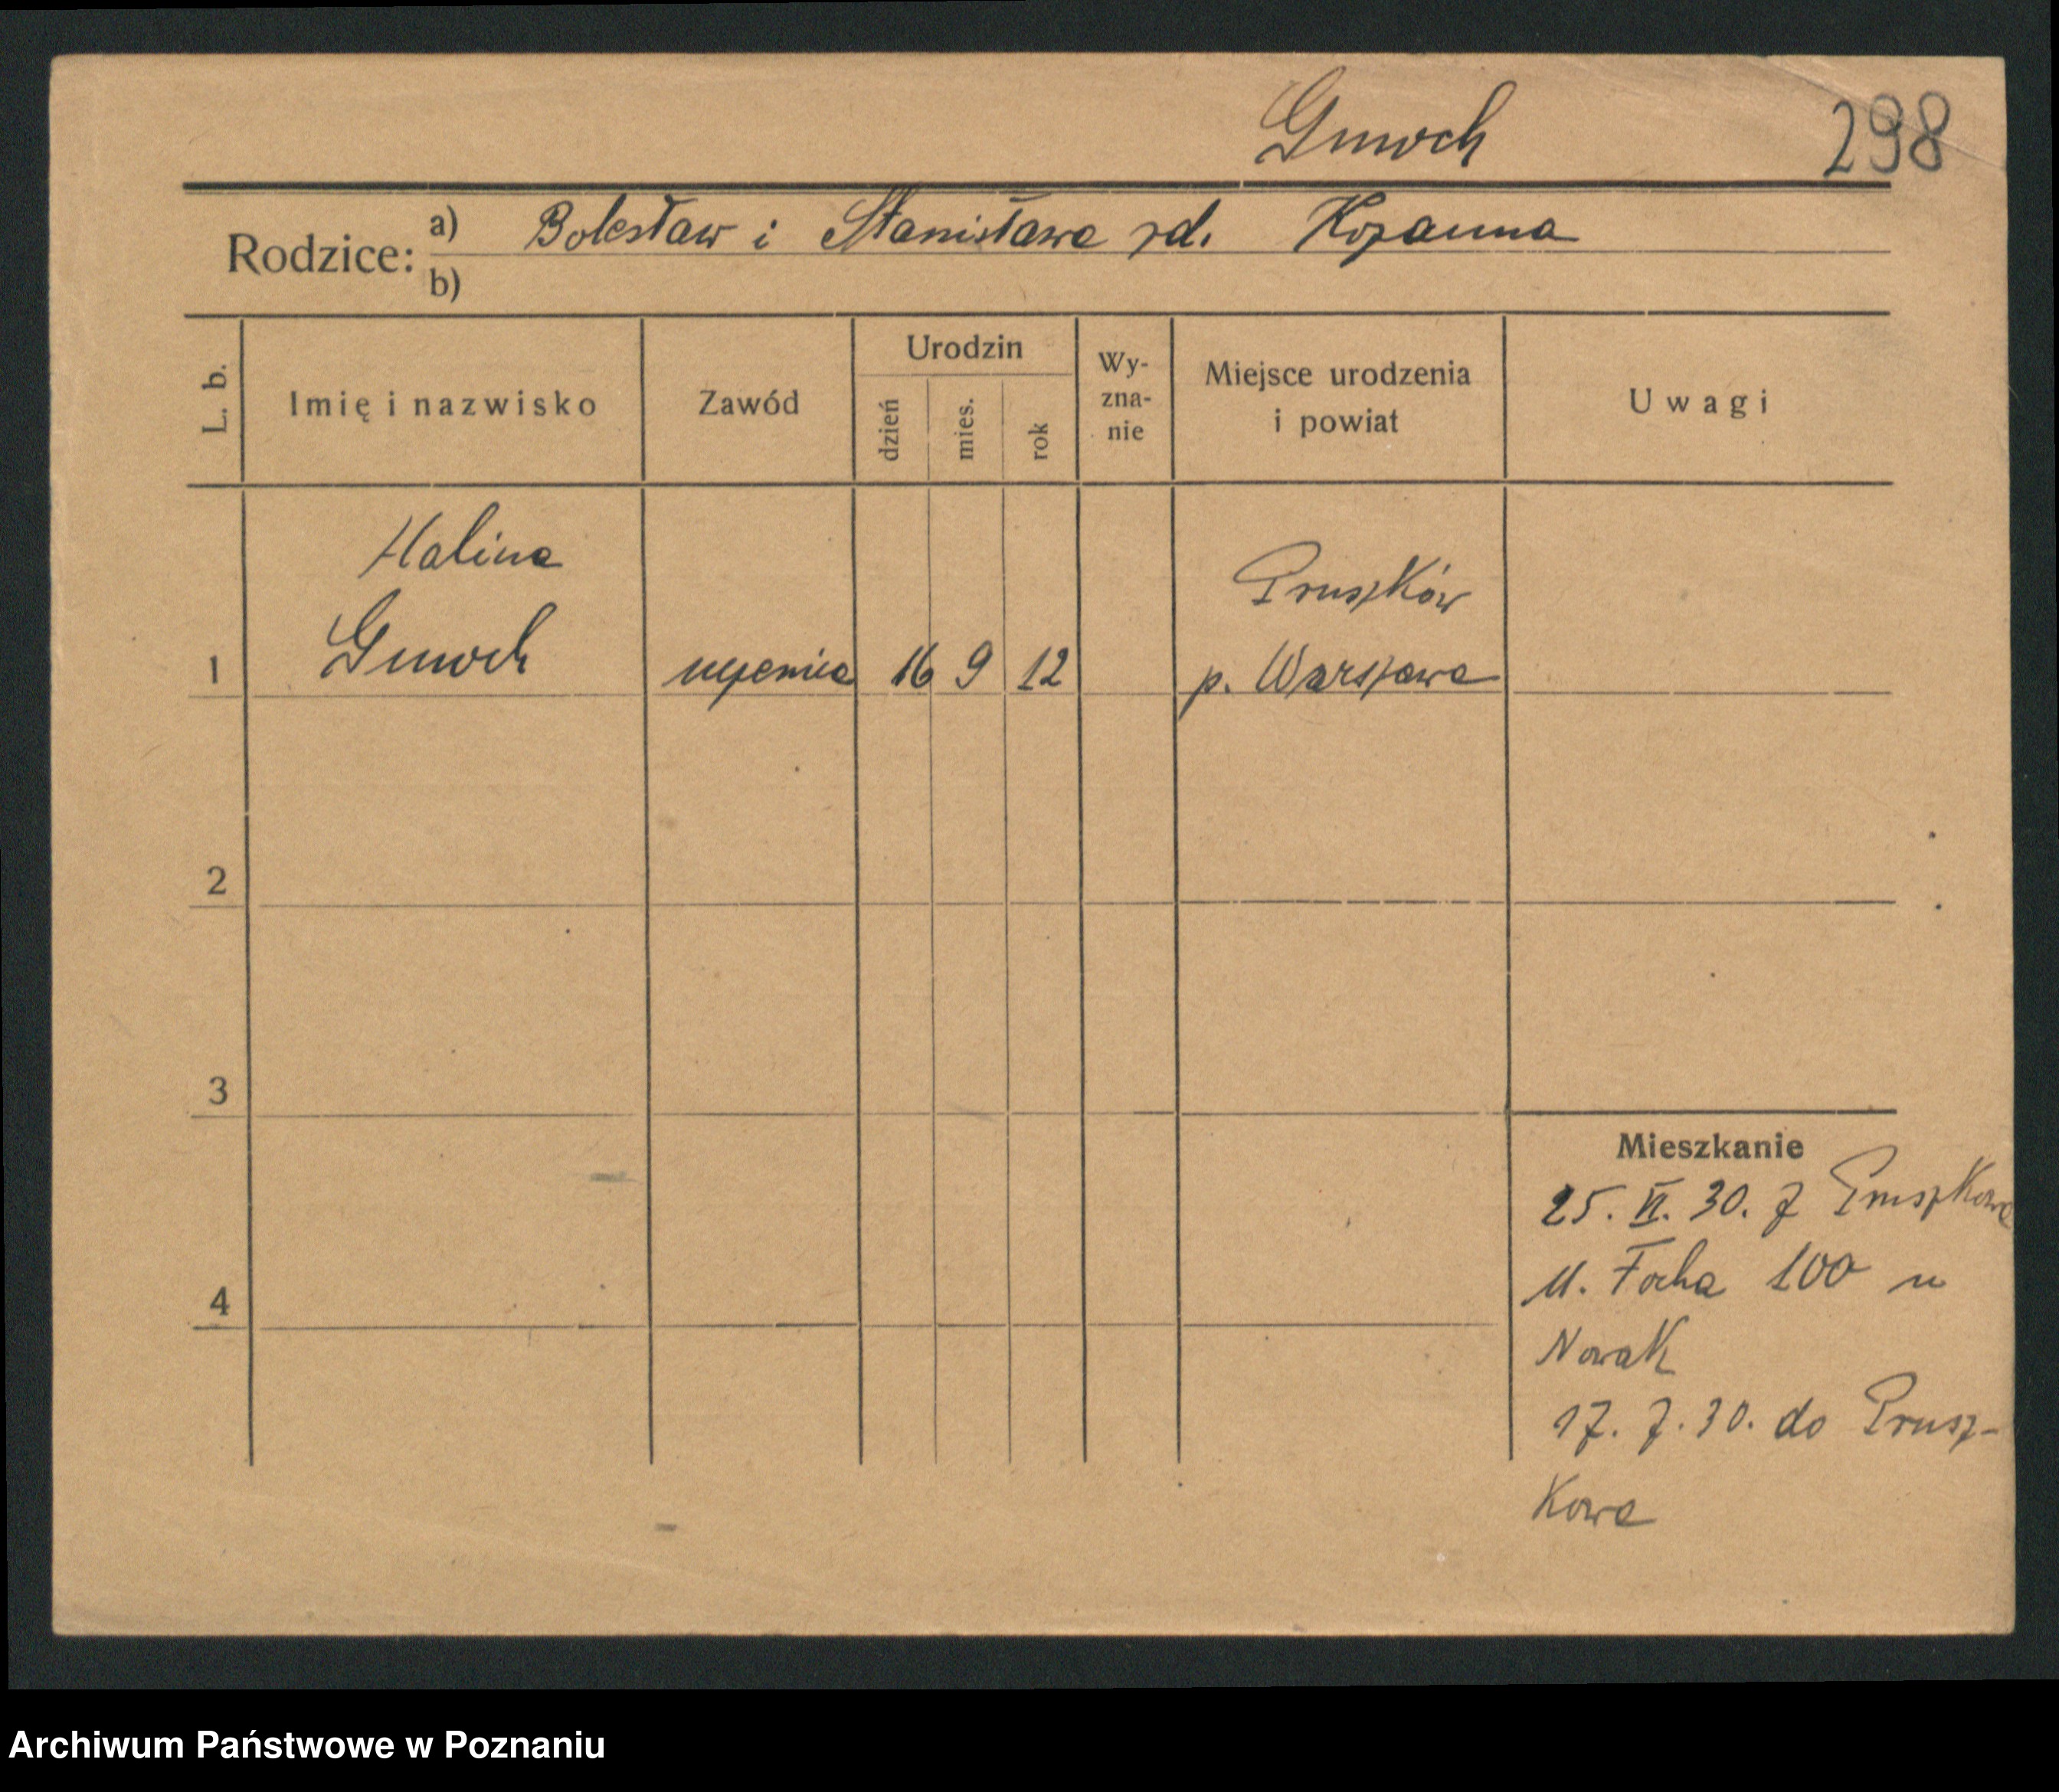 Gmoch
298
Rodzice: a) Bolesław i Stanisława zd. Kozanna
b)
L. b.
Imię i nazwisko
Zawód
Urodzin
dzień
mies.
rok
Wy-
zna-
nie
Miejsce urodzenia
i powiat
Uwagi
Halina
Pruszków
1 Gmoch uczenica 16 9 12 p. Warszawa
2
3
4
Mieszkanie
25. VI. 30. z Pruszkowa
ul. Focha 100 u
Nowak
17. 7. 30. do Prusz-
kowa
Archiwum Państwowe w Poznaniu